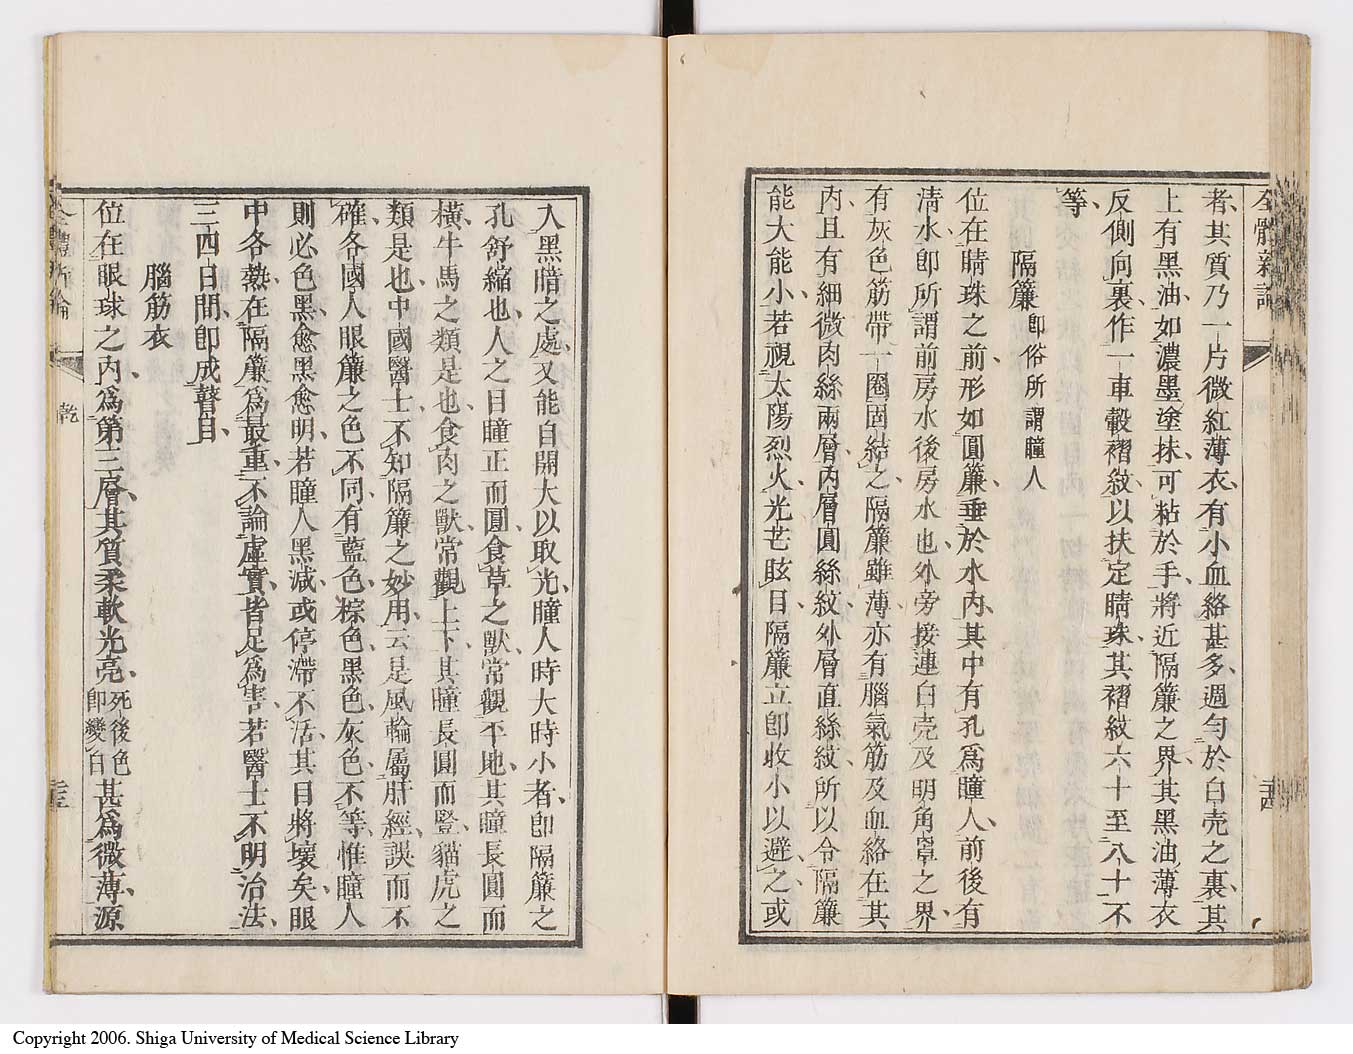 全體新論
者其質乃一片微紅薄衣有小血絡甚多週勻於白壳之裏其
上有黑油如濃墨塗抹可粘於手將近隔簾之界其黑油薄衣
反側向裏作一車轂褶紋以扶定睛珠其褶紋六十至八十不
等
隔簾 卽俗所謂瞳人
位在睛珠之前形如圓簾垂於水內其中有孔爲瞳人前後有
淸水卽所謂前房水後房水也外旁接連白壳及明角罩之界
有灰色筋帶一圈固結之隔簾雖薄亦有腦氣筋及血絡在其
內且有細微肉絲兩層內層圓絲紋外層直絲紋所以令隔簾
能大能小若視太陽烈火光芒眩目隔簾立卽收小以避之或
入黑暗之處又能自開大以取光瞳人時大時小者卽隔簾之
孔舒縮也人之目瞳正而圓食草之獸常觀平地其瞳長圓而
橫牛馬之類是也食肉之獸常觀上下其瞳長圓而豎貓虎之
類是也中國醫士不知隔簾之妙用云是風輪屬肝經誤而不
確各國人眼簾之色不同有藍色棕色黑色灰色不等惟瞳人
則必色黑愈黑愈明若瞳人黑減或停滯不活其目將壞矣眼
中各熱在隔簾爲最重不論虛實皆足爲害若醫士不明治法
三四日間卽成瞽目
腦筋衣
位在眼球之內爲第三層其質柔軟光亮死後色卽變白甚爲微薄源
全體新論 乾
Copyright 2006. Shiga University of Medical Science Library